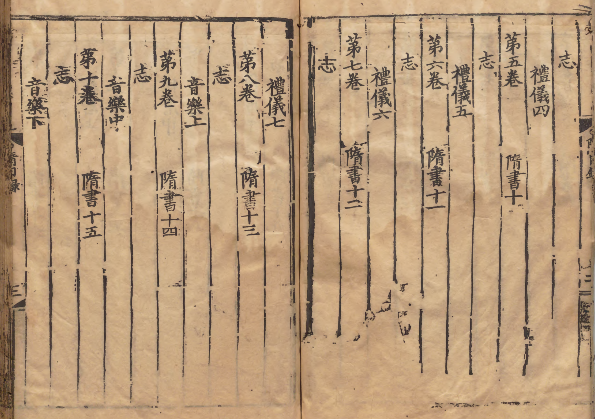 志
禮儀四
第五卷 隋書十
志
禮儀五
第六卷 隋書十一
志
禮儀六
第七卷 隋書十二
志
禮儀七
第八卷 隋書十三
志
音樂上
第九卷 隋書十四
志
音樂中
第十卷 隋書十五
志
音樂下